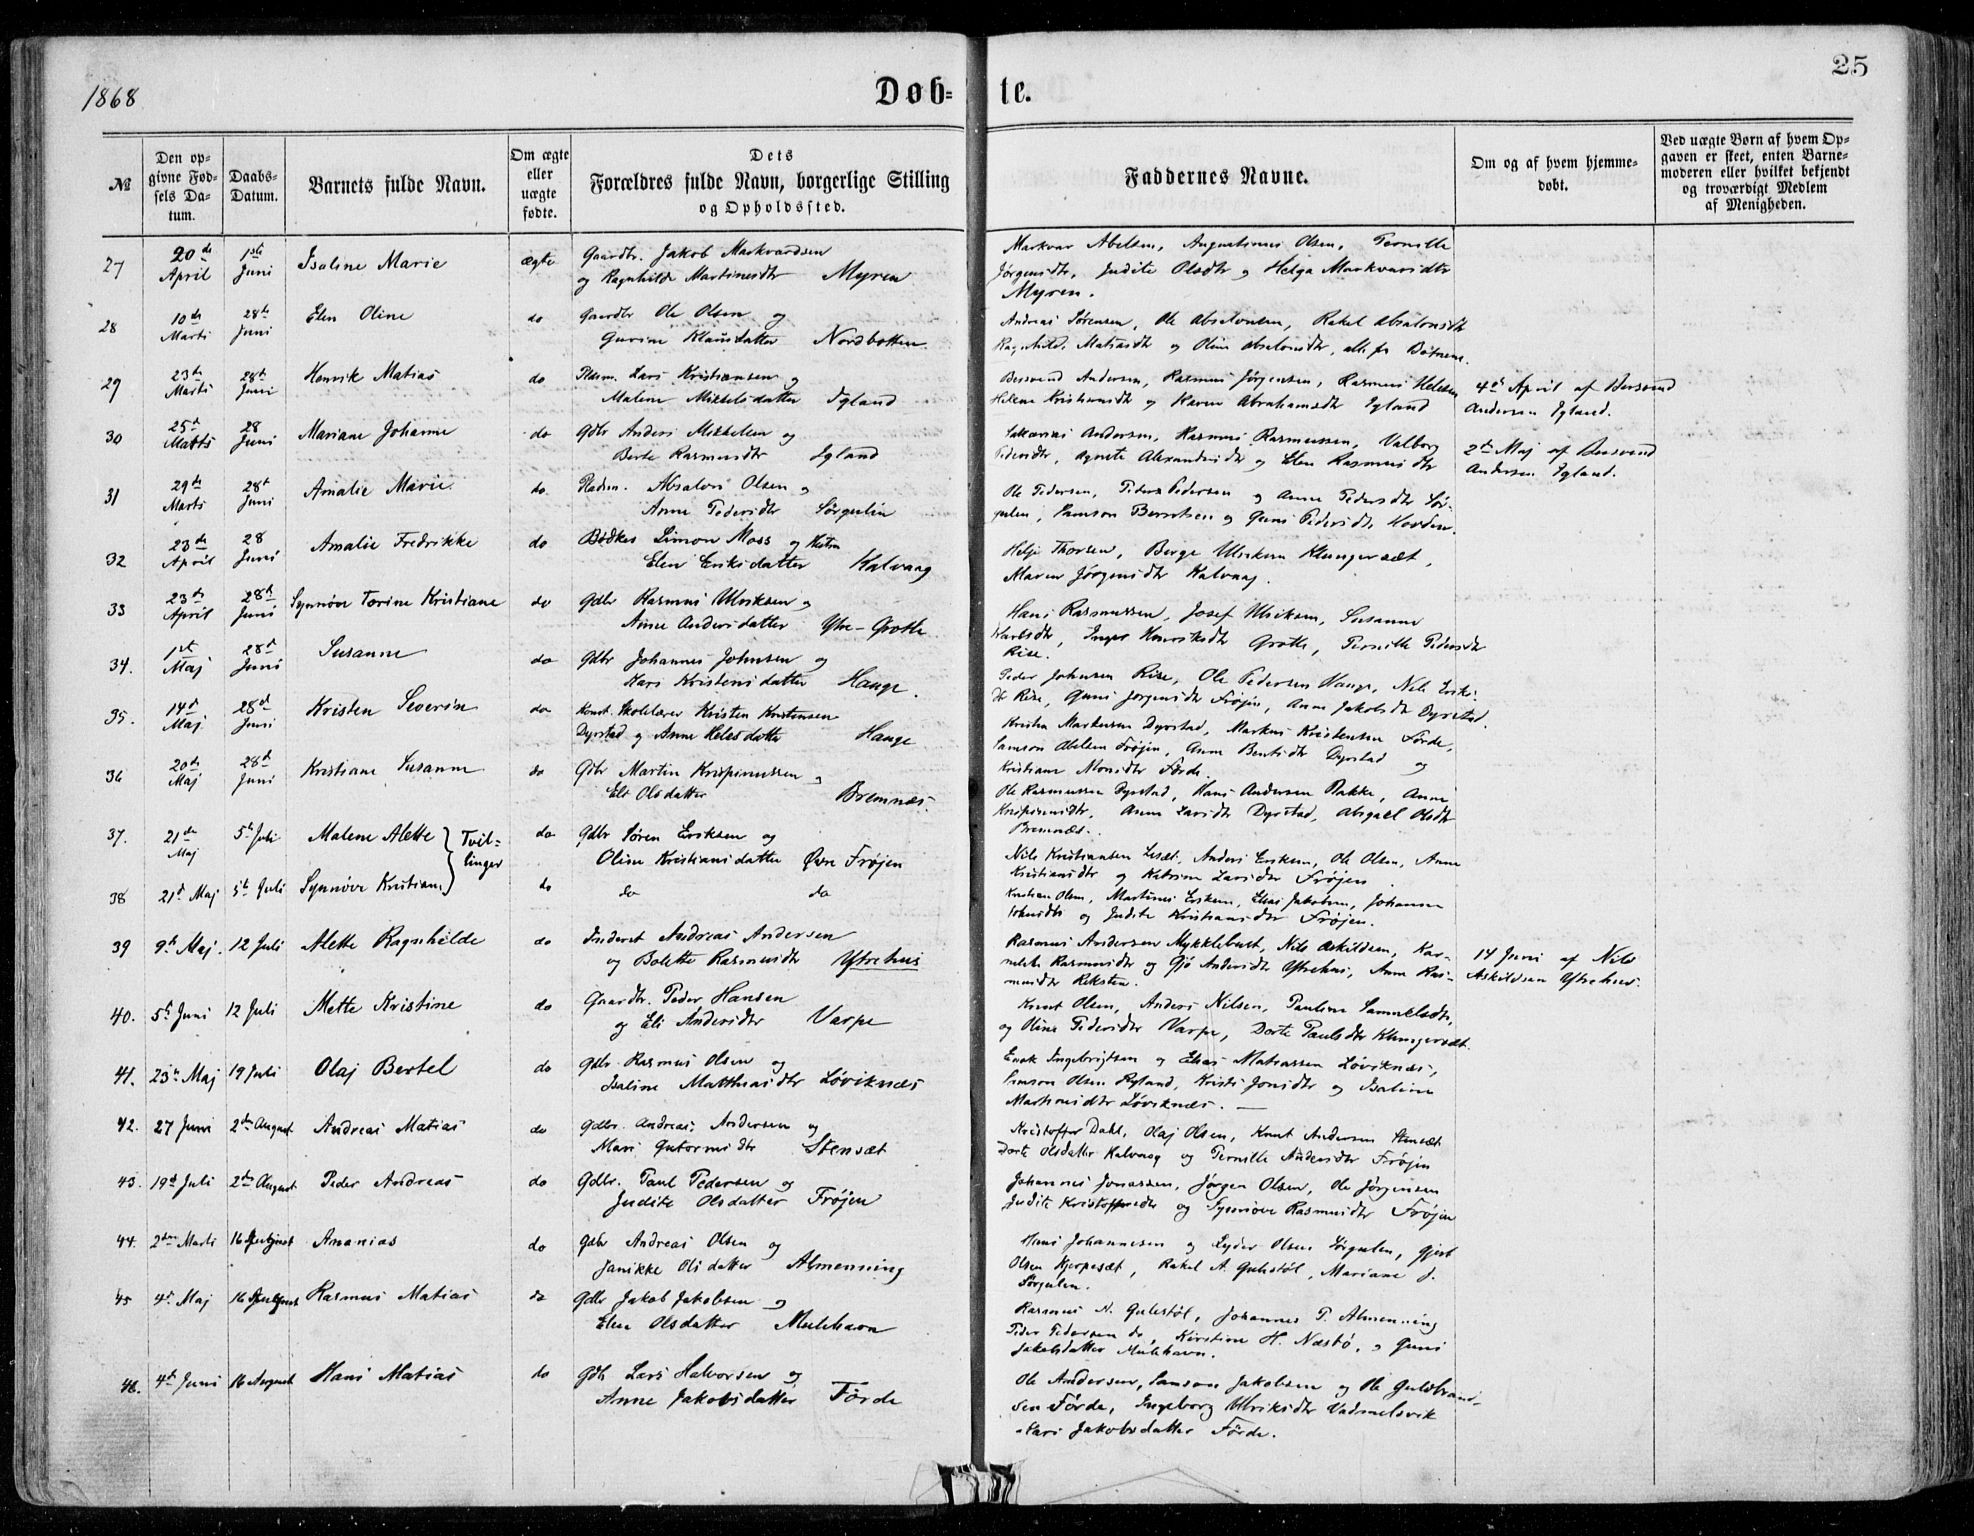 1868
Døb-
te.
25
№
Den op-
givne Fød-
sels Da-
tum.
Daabs-
Datum.
Barnets fulde Navn.
Om ægte
eller
uægte
fødte.
Dets
Forældres fulde Navn, borgerlige Stilling
og Opholdssted.
Faddernes Navne.
Om og af hvem hjemme-
døbt.
Ved uægte Børn af hvem Op-
gaven er skeet, enten Barne-
moderen eller hvilket bekjendt
og troværdigt Medlem
af Menigheden.
27 20de April 1ste Juni Isaline Marie ægte Gaardbr. Jakob Markvardsen
og Ragnhilde Martinusdtr Myren
Markvar Abelsen, Augustinus Olsen, Pernille
Jørgensdtr, Judite Olsdtr og Helga Markvarsdtr
Myren.
28 10de Marts 28de Juni Elen Oline do Gaardbr Ole Olsen og
Gurine Klausdatter Nordbotten
Andreas Sørensen, Ole Absalonsen, Rakel Absalonsdtr
Ragnhild Matiasdtr og Oline Absalonsdtr, alle fra Botnene.
29 23de Marts 28de Juni Henrik Matias do Pladsm. Lars Kristiansen og
Malene Mikkelsdatter Igland
Bersvend Andersen, Rasmus Jørgensen, Rasmus Helesen
Helene Kristiansdtr og Karen Abrahamsdtr Igland
4de April af Bersvend
Andersen Igland.
30 25de Marts 28 Juni Mariane Johanne do Gdbr Anders Mikkelsen og
Berte Rasmusdtr Igland
Sakarias Andersen, Rasmus Rasmussen, Valborg
Pedersdtr, Agnete Alexandersdtr og Elen Rasmusdtr
2de Maj af Bersvend
Andersen Igland.
31 29de Marts 28de Juni Amalie Marie do Pladsm. Absalon Olsen og
Anne Pedersdtr Sørgulen
Ole Pedersen, Peder Pedersen og Anne Pedersdtr Sør-
gulen, Samson Berntsen og Guni Pedersdtr Hovden.
32 23de April 28 Juni Amalie Fredrikke do Bødker Simon Moss og Hustru
Elen Eriksdatter Kalvaag
Helje Thorsen, Berge Ulriksen Klungersæt,
Maren Jørgensdtr Kalvaag.
33 23de April 28de Juni Synnøve Torine Kristiane do Gdbr Rasmus Ulriksen og
Anne Andersdatter Ytre-Grotle
Hans Rasmussen, Josef Ulriksen, Susanne
Karlsdtr, Inger Henriksdtr Grotle, Pernille Pedersdtr
Rise.
34. 1ste Maj 28de Juni Susanne do Gdbr Johannes Johnsen og
Kari Kristensdatter Hauge.
Peder Johnsen Rise, Ole Pedersen Hauge, Nils Eriks-
dtr Rise, Guni Jørgensdtr Frøjen, Anne Jakobsdtr Dyrstad.
35. 14de Maj 28de Juni Kristen Severin do Konst. Skolelærer Kristen Kristensen
Dyrstad og Anne Helesdatter Hauge
Kristen Markussen Dyrstad, Markus Kristensen Førde,
Samson Abelsen Frøjen, Anne Bentsdtr Dyrstad og
Kristiane Monsdtr Førde.
36 20de Maj 28de Juni Kristiane Susanne do Gdbr Martin Krispinussen og
Eli Olsdatter Bremnæs.
Ole Rasmussen Dyrstad, Hans Andersen Bakke, Anne
Krispinusdtr, Anne Larsdtr Dyrstad, Abigael Olsdtr
Bremnæs.
37. 21de Maj 5te Juli Malene Alette do Gdbr Søren Eriksen og
Tvil-
linger
Oline Kristiansdatter Øvre Frøjen
Nils Kristiansen Lesæt, Anders Eriksen, Ole Olsen, Anne
Kristiansdtr og Katrine Larsdtr Frøjen.
38 21de Maj 5te Juli Synnøve Kristiane do do do
Kristian Olsen, Martinus Eriksen, Elias Jakobsen, Johanne
Johnsdtr og Judite Kristiansdtr Frøjen.
39 9de Maj. 12 Juli Alette Ragnhilde do Inderst Andreas Andersen
og Bolette Rasmusdtr Ytrehus
Rasmus Andersen Myklebust, Nils Askildsen, Kar-
nelia Rasmusdtr og Gjø Andersdtr Ytrehus, Anne Ras-
musdtr Reksten.
14 Juni af Nils
Askildsen Ytrehus.
40. 5te Juni 12 Juli Mette Kristine do Gaardbr. Peder Hansen
og Eli Andersdtr Varpe
Knut Olsen, Anders Nilsen, Pauline Samuelsdtr,
og Oline Pedersdtr Varpe, Dorte Paulsdtr Klungersæt.
41. 23de Maj 19 Juli Olaj Bertel do Gdbr. Rasmus Olsen og
Isaline Matthiasdtr Løviknæs
Enok Ingebrigtsen og Elias Matiassen Løviknæs,
Samson Olsen Ryland, Kristi Jonsdtr og Isaline
Martinusdtr Løviknæs. —
42. 27 Juni 2den August Andreas Matias do Gdbr. Andreas Andersen og
Mari Guttormsdtr Stensæt
Kristoffer Dahl, Olaj Olsen, Knut Andersen Stensæt
Dorte Olsdatter Kalvaag og Pernille Andersdtr Frøjen
43. 19de Juli 2den August Peder Andreas do Gdbr. Paul Pedersen og
Judite Olsdatter Frøjen
Johannes Jonassen, Jørgen Olsen, Ole Jørgensen
Judite Kristoffersdtr og Synnøve Rasmusdtr Frøjen
44. 2den Marts 16 August Ananias do Gdbr Andreas Olsen og
Janikke Olsdatter Almenning
Hans Johannesen og Lyder Olsen Sørgulen, Gjert
Olsen Kjerpesæt, Rakel A. Gulestøl, Mariane J.
Sørgulen.
45 4de Maj 16 August Rasmus Matias do Gdbr Jakob Jakobsen og
Elen Olsdatter Mulehavn
Rasmus N. Gulestøl, Johannes P. Almenning
Peder Pedersen do, Kirstine H. Næstø, og Guni
Jakobsdatter Mulehavn.
46. 4de Juni 16 August Hans Matias do Gdbr Lars Halvorsen og
Anne Jakobsdatter Førde
Ole Andersen, Samson Jakobsen og Ole Guldbrand-
sen Førde, Ingeborg Ulriksdtr Vadmelsvik
Kari Jakobsdatter Førde.